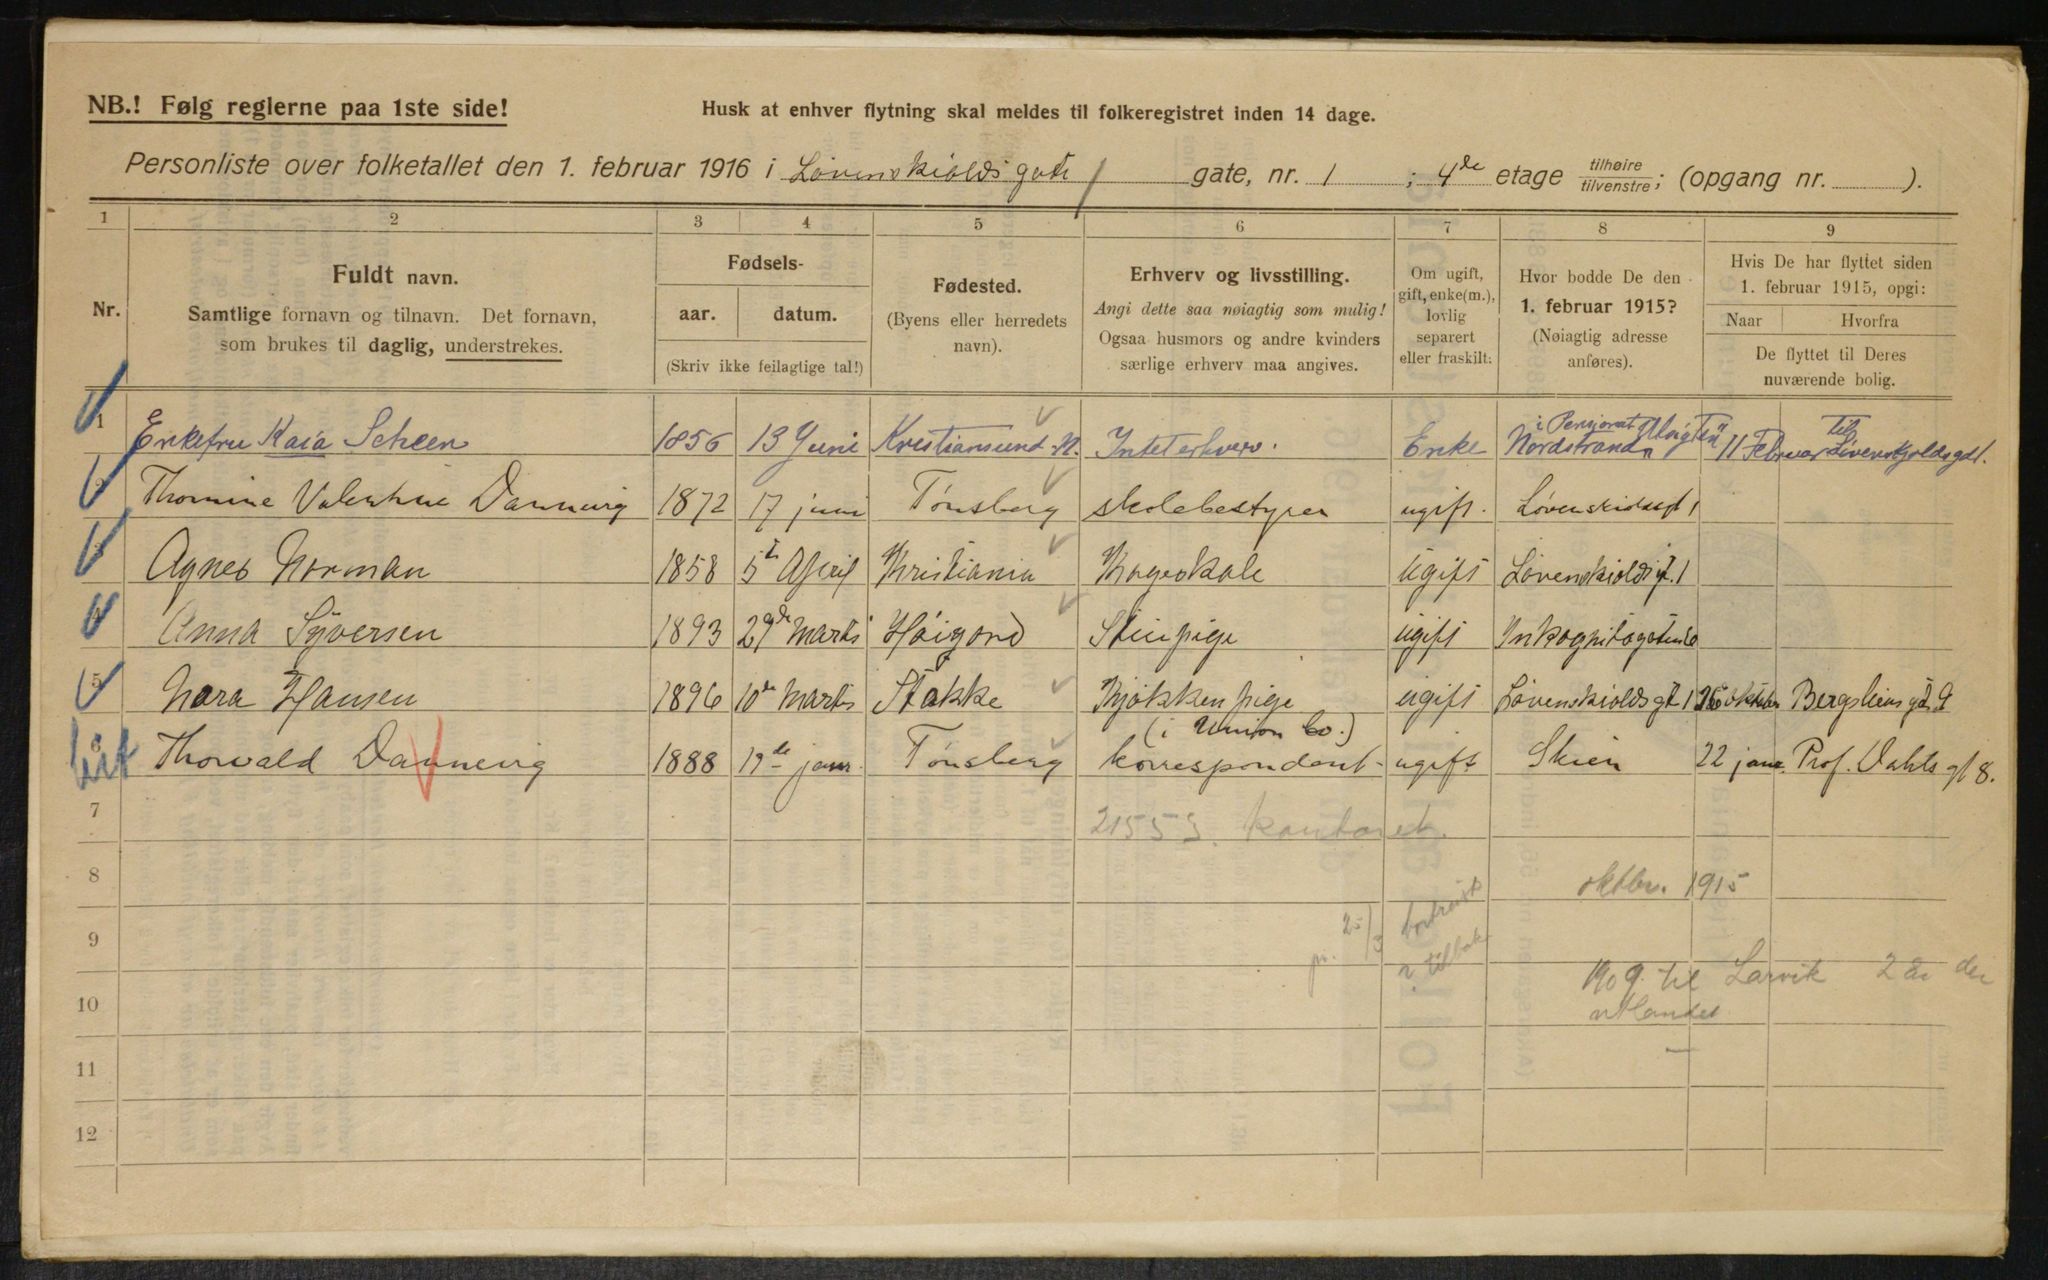 NB.! Følg reglerne paa 1ste side!
Husk at enhver flytning skal meldes til folkeregistret inden 14 dage.
Personliste over folketallet den 1. februar 1916 i Løvenskiolds gate gate, nr. 1 ; 4de etage tilhøire/tilvenstre; (opgang nr. ).
1 2 3 4 5 6 7 8 9
Nr.
Fuldt navn.
Samtlige fornavn og tilnavn. Det fornavn,
som brukes til daglig, understrekes.
Fødsels-
aar. datum.
(Skriv ikke feilagtige tal!)
Fødested.
(Byens eller herredets
navn).
Erhverv og livsstilling.
Angi dette saa nøiagtig som mulig!
Ogsaa husmors og andre kvinders
særlige erhverv maa angives.
Om ugift,
gift, enke(m.),
lovlig
separert
eller fraskilt:
Hvor bodde De den
1. februar 1915?
(Nøiagtig adresse
anføres).
Hvis De har flyttet siden
1. februar 1915, opgi:
Naar Hvorfra
De flyttet til Deres
nuværende bolig.
1 Enkefru Kaia Scheen 1856 13 Juni Kristiansund N. Intet erhverv. Enke i Pensionat Nordstrand 11 Februar til Løvenskjoldsgd 1.
2 Thomine Valentine Dannevig 1872 17 juni Tønsberg skolebestyrer ugift. Løvenskioldsgt 1
3 Agnes Norman 1858 5te April Kristiania ugift Løvenskiolds gt. 1
4 Anna Syversen 1893 29de Marts Høigord Stuepige ugift Inkognitogaten
5 Nora Hansen 1896 10de Marts Stokke Kjøkkenpige ugift Løvenskiolds gt 1 oktober Bergsliens gt. 9
6 Thorvald Dannevig 1888 19de janr. Tønsberg (i Union Co.) korrespondent ugift Skien 22 janr. Prof. Dahls gt 8.
7 21553 kontoret.
8 oktbr. 1915
25/3 bortreist
9 tilbake
1909 til Larvik 2 år der
10 utlandet
11
12